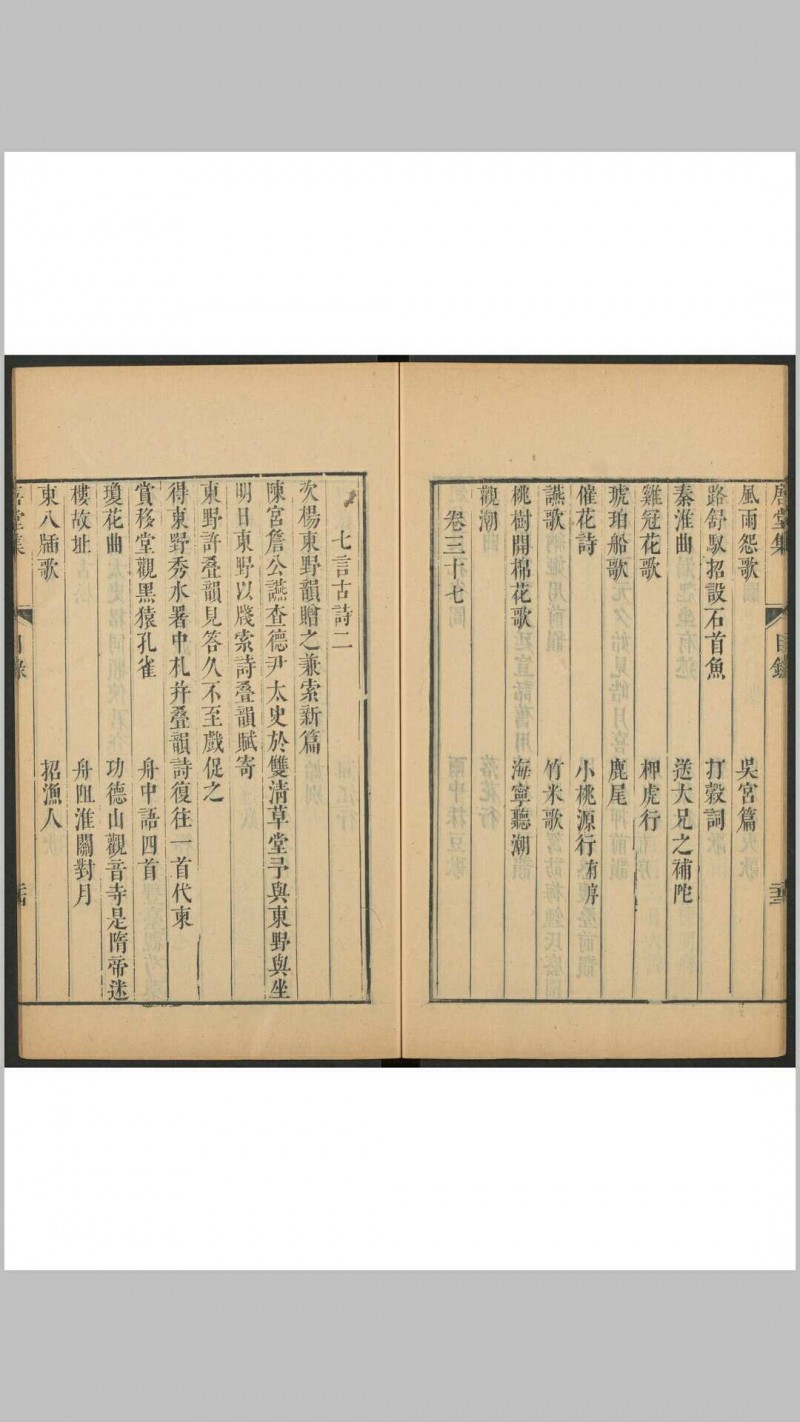 唐堂集 目錄
風雨怨歌 吳宮篇
路舒馭招設石首魚 打穀詞
秦淮曲 送大兄之補陀
雞冠花歌 柙虎行
琥珀船歌 鹿尾
催花詩 小桃源行有序
讌歌 竹米歌
桃樹開棉花歌 海寧聽潮
觀潮
卷三十七
七言古詩二
次楊東野韻贈之兼索新篇
陳宮詹公讌查德尹太史於雙清草堂予與東野與坐
明日東野以牋索詩叠韻賦寄
東野許叠韻見答久不至戲促之
得東野秀水署中札并叠韻詩復往一首代柬
賞移堂觀黑猿孔雀 舟中語四首
瓊花曲 功德山觀音寺是隋帝迷
樓故址 舟阻淮關對月
東八牐歌 招漁人
堂集 目錄